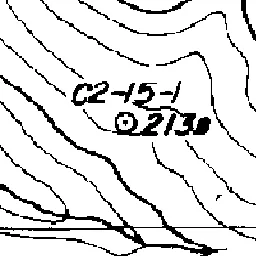 C2-15-1
213